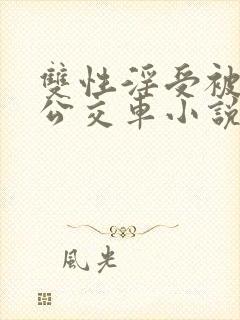 雙性淫受被
公交車小說
風光